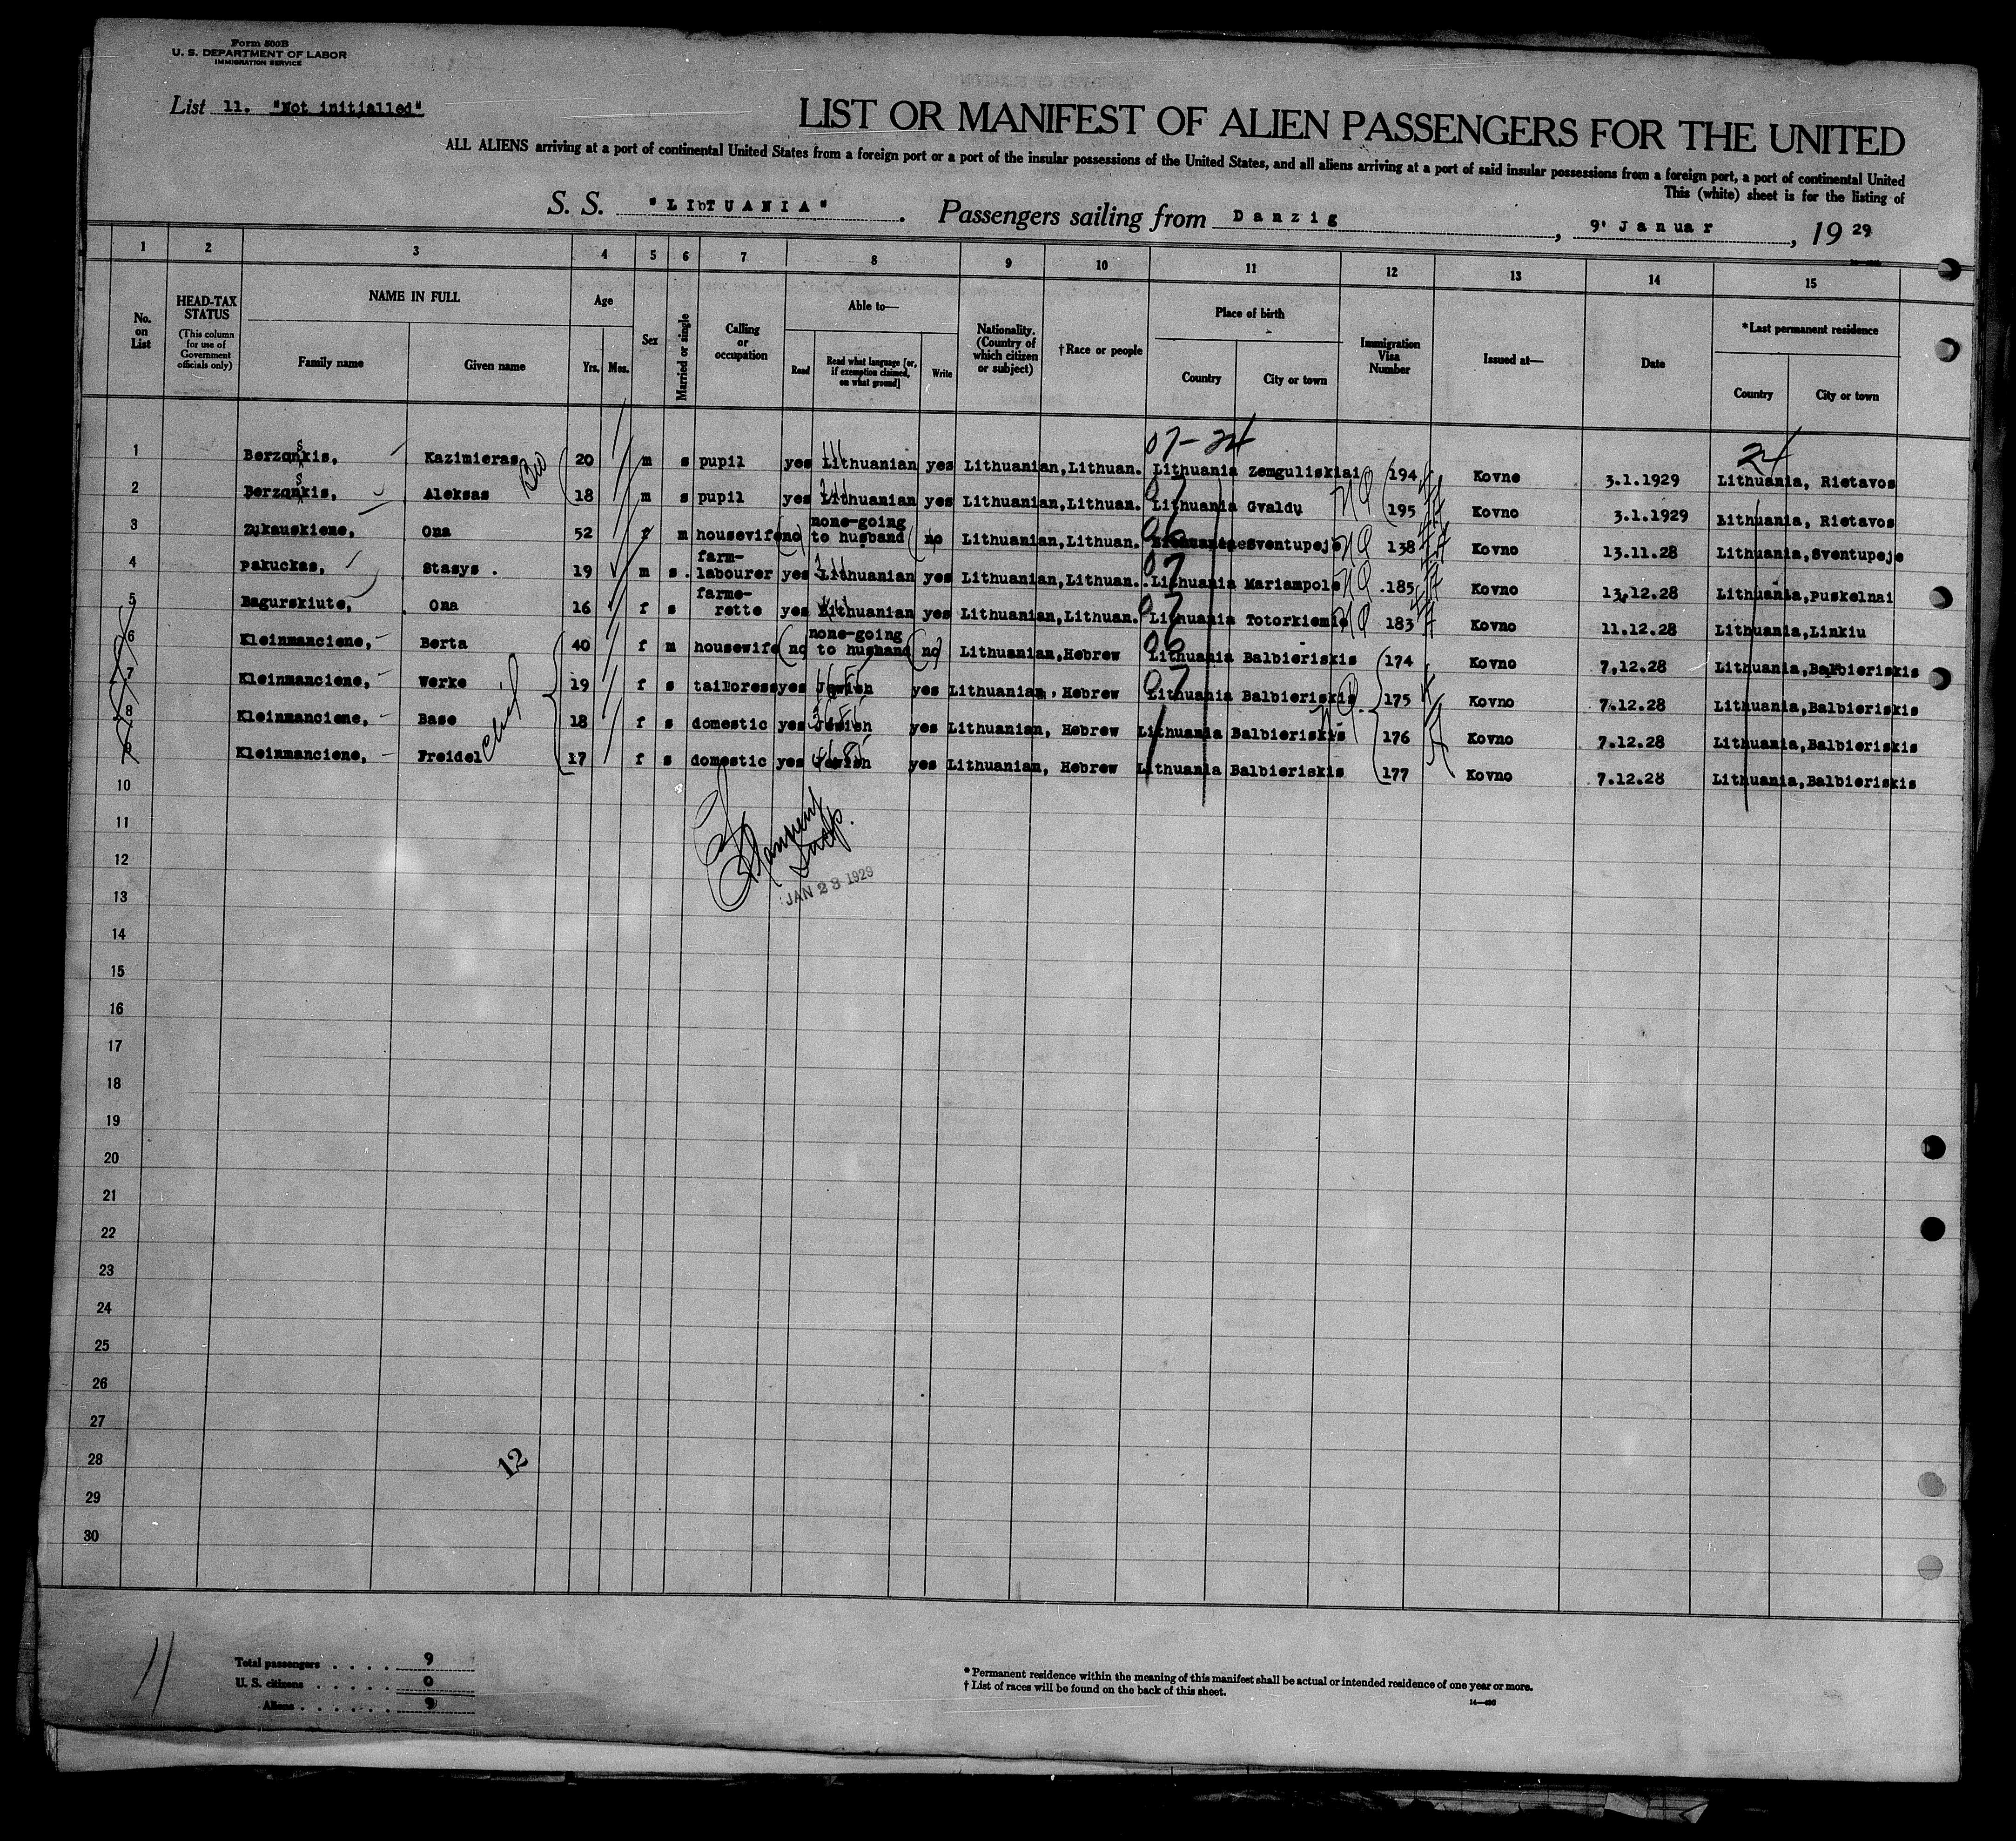 Form 500B
U. S. DEPARTMENT OF LABOR
IMMIGRATION SERVICE
List 11. "Not initialled"
LIST OR MANIFEST OF ALIEN PASSENGERS FOR THE UNITED
ALL ALIENS arriving at a port of continental United States from a foreign port or a port of the insular possessions of the United States, and all aliens arriving at a port of said insular possessions from a foreign port, a port of continental United
This (white) sheet is for the listing of
S. S. "LITUANIA". Passengers sailing from Danzig, 9' Januar, 19 29
1 2 3 4 5 6 7 8 9 10 11 12 13 14 15
No. on List
HEAD-TAX STATUS (This column for use of Government officials only)
NAME IN FULL
Family name Given name
Age
Yrs. Mos.
Sex
Married or single
Calling or occupation
Able to—
Read Read what language [or, if exemption claimed, on what ground] Write
Nationality. (Country of which citizen or subject)
†Race or people
Place of birth
Country City or town
Immigration Visa Number
Issued at—
Date
*Last permanent residence
Country City or town
07-24 24
1 Berzanskis, Kazimieras 20 m s pupil yes Lithuanian yes Lithuanian, Lithuan. Lithuania Zemguliskiai 194 Kovno 3.1.1929 Lithuania, Rietavos
2 Berzanskis, Aleksas 18 m s pupil yes Lithuanian yes Lithuanian, Lithuan. Lithuania Gvaldu 195 Kovno 3.1.1929 Lithuania, Rietavos
3 Zukauskiene, Ona 52 f m housewife no none-going to husband no Lithuanian, Lithuan. Sventupeje 138 Kovno 13.11.28 Lithuania, Sventupeje
4 Pakuckas, Stasys. 19 m s. farm-labourer yes Lithuanian yes Lithuanian, Lithuan. Lithuania Mariampole 185 Kovno 13.12.28 Lithuania, Puskelnai
5 Bagurskiute, Ona 16 f s farme-rette yes Lithuanian yes Lithuanian, Lithuan. Lithuania Totorkiemio 183 Kovno 11.12.28 Lithuania, Linkiu
6 Kleinmanciene, Berta 40 f m housewife no none-going to husband no Lithuanian, Hebrew Lithuania Balbieriskis 174 Kovno 7.12.28 Lithuania, Balbieriskis
7 Kleinmanciene, Werke 19 f s tailoress yes Jewish yes Lithuanian, Hebrew Lithuania Balbieriskis 175 Kovno 7.12.28 Lithuania, Balbieriskis
8 Kleinmanciene, Base 18 f s domestic yes Jewish yes Lithuanian, Hebrew Lithuania Balbieriskis 176 Kovno 7.12.28 Lithuania, Balbieriskis
9 Kleinmanciene, Freidel 17 f s domestic yes Jewish yes Lithuanian, Hebrew Lithuania Balbieriskis 177 Kovno 7.12.28 Lithuania, Balbieriskis
10
11
12
JAN 23 1929
13
14
15
16
17
18
19
20
21
22
23
24
25
26
27
28
12
29
30
11
Total passengers . . . . 9
U. S. citizens . . . . . 0
Aliens . . . . . . 9
* Permanent residence within the meaning of this manifest shall be actual or intended residence of one year or more.
† List of races will be found on the back of this sheet.